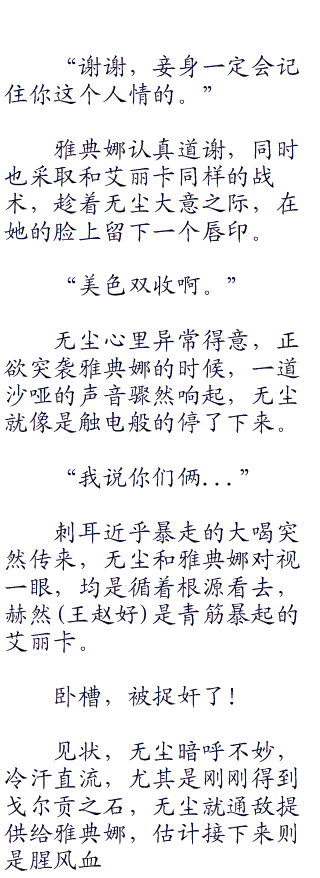 “谢谢，妾身一定会记
住你这个人情的。”
雅典娜认真道谢，同时
也采取和艾丽卡同样的战
术，趁着无尘大意之际，在
她的脸上留下一个唇印。
“美色双收啊。”
无尘心里异常得意，正
欲突袭雅典娜的时候，一道
沙哑的声音骤然响起，无尘
就像是触电般的停了下来。
“我说你们俩...”
刺耳近乎暴走的大喝突
然传来，无尘和雅典娜对视
一眼，均是循着根源看去，
赫然(王赵好)是青筋暴起的
艾丽卡。
卧槽，被捉奸了!
见状，无尘暗呼不妙，
冷汗直流，尤其是刚刚得到
戈尔贡之石，无尘就通敌提
供给雅典娜，估计接下来则
是腥风血